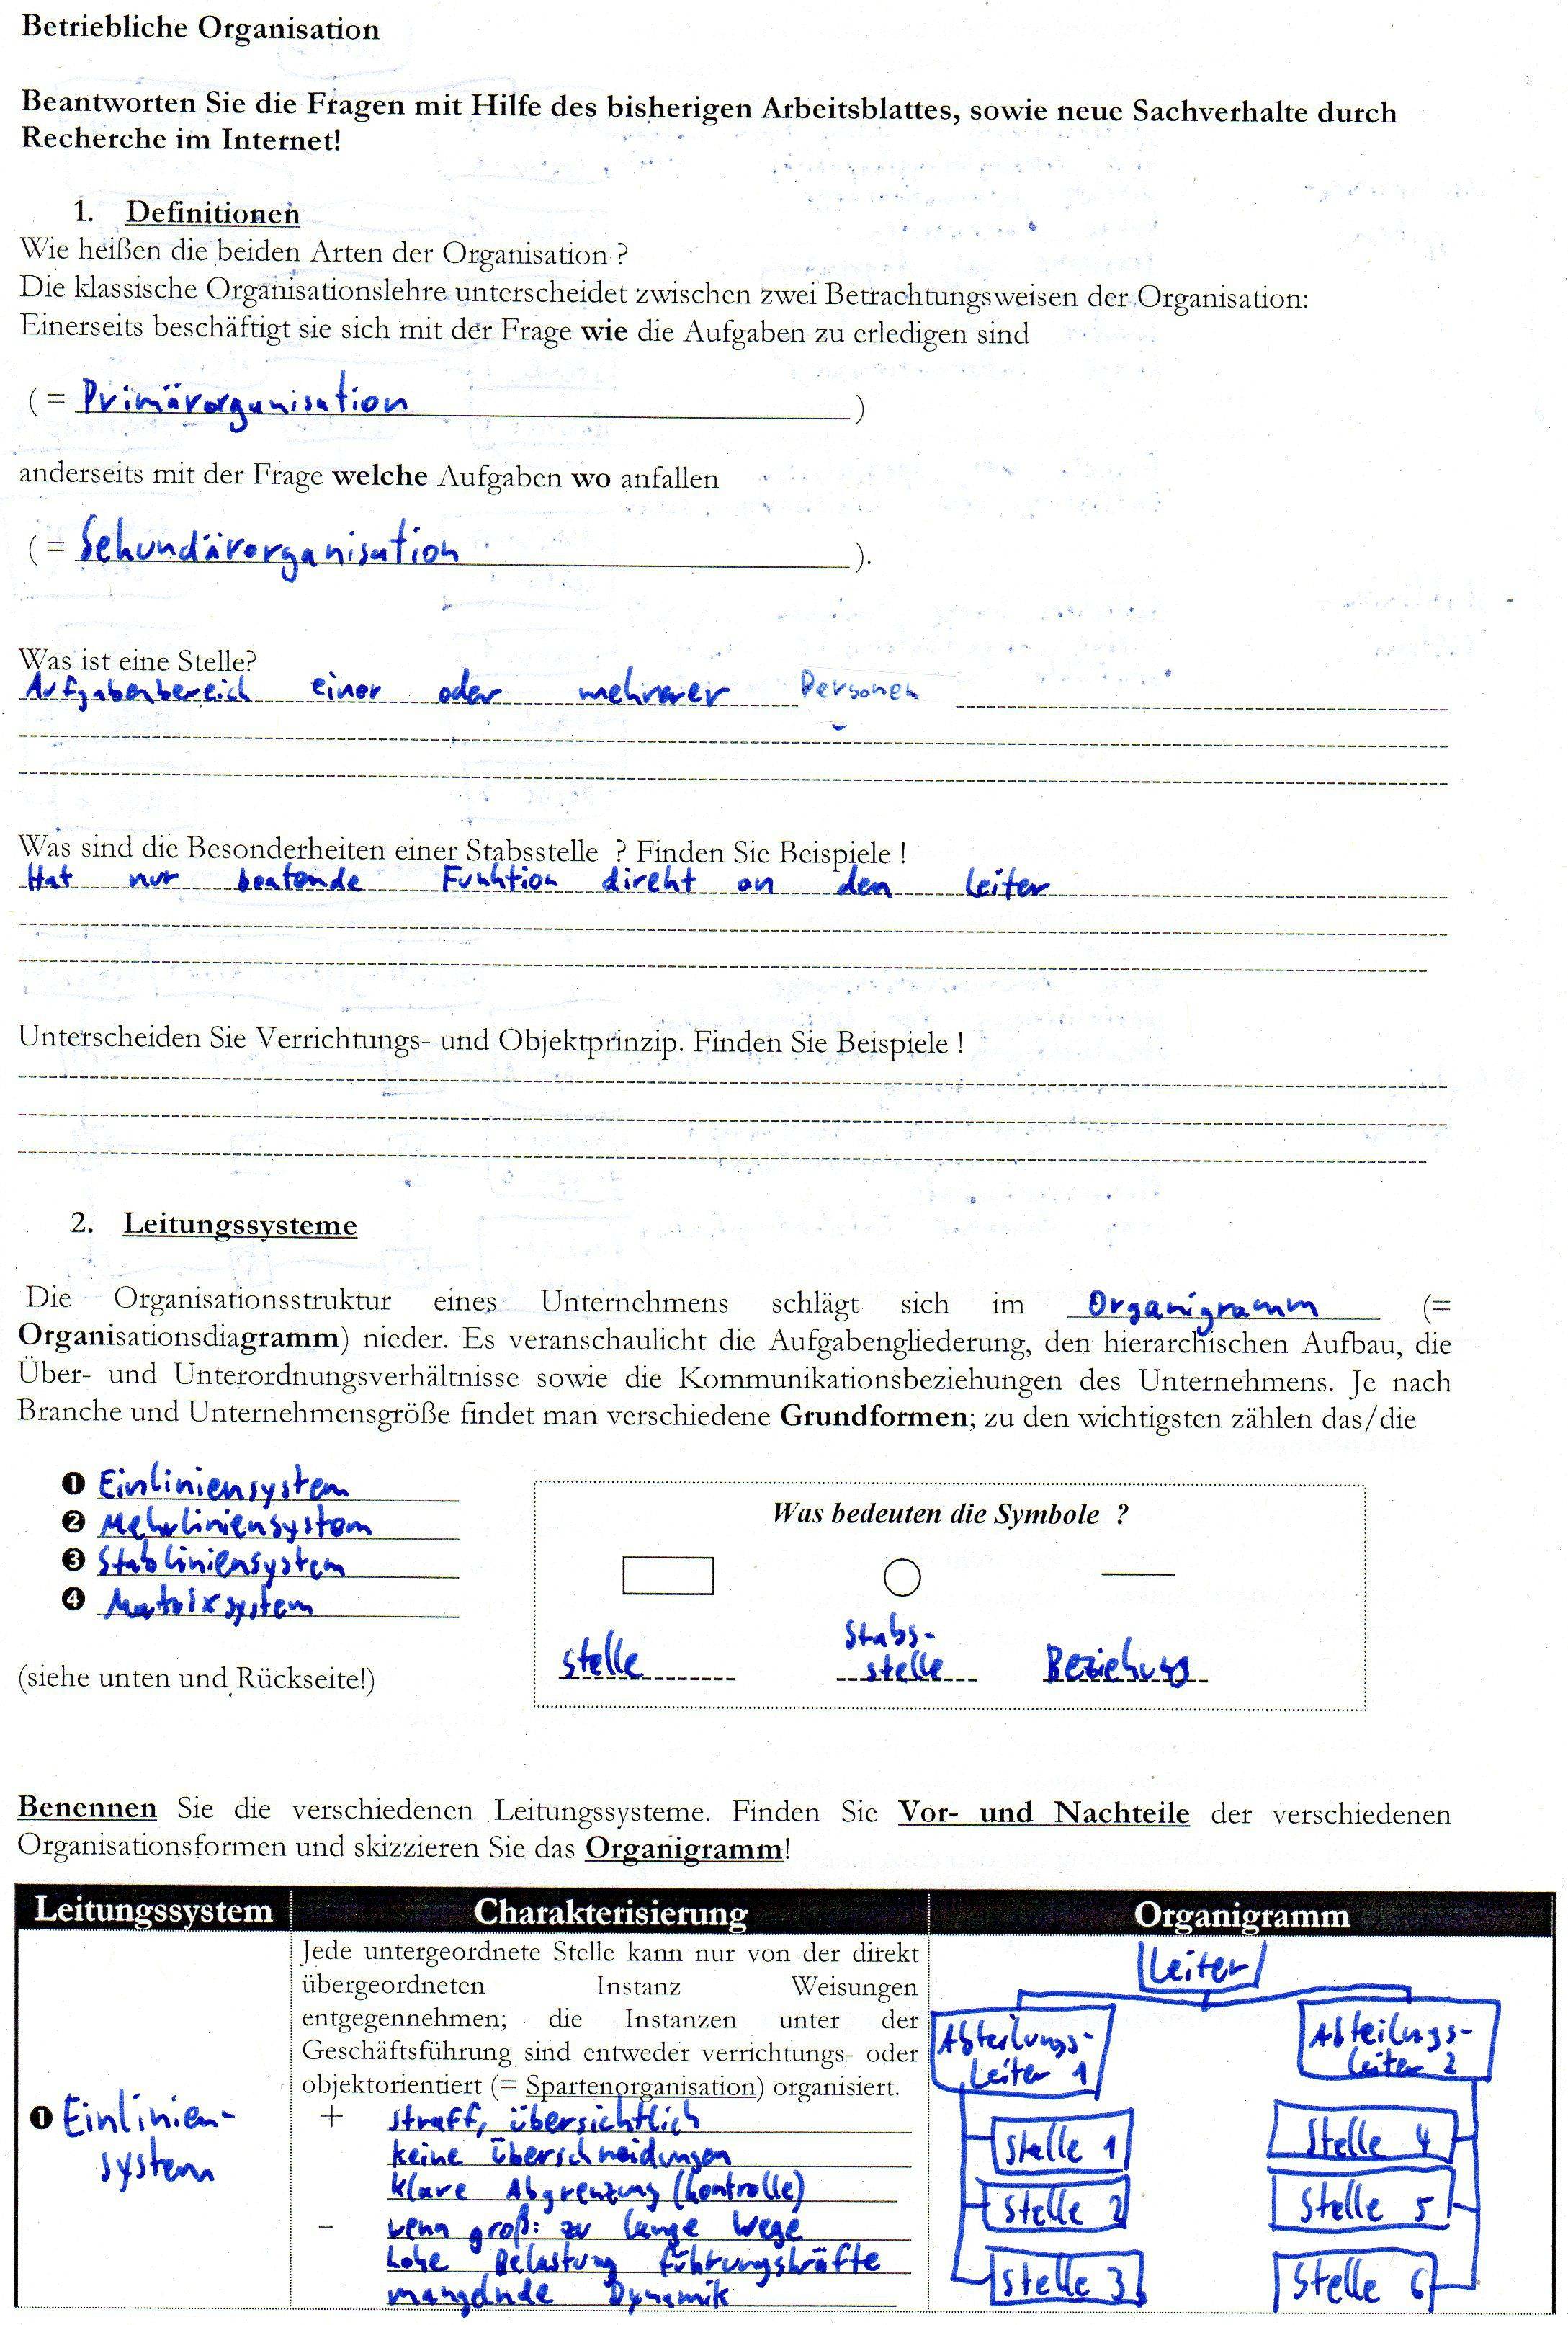 Betriebliche Organisation
Beantworten Sie die Fragen mit Hilfe des bisherigen Arbeitsblattes, sowie neue Sachverhalte durch
Recherche im Internet!
1. Definitionen
Wie heißen die beiden Arten der Organisation ?
Die klassische Organisationslehre unterscheidet zwischen zwei Betrachtungsweisen der Organisation:
Einerseits beschäftigt sie sich mit der Frage wie die Aufgaben zu erledigen sind
(= Primärorganisation )
anderseits mit der Frage welche Aufgaben wo anfallen
(= Sekundärorganisation ).
Was ist eine Stelle?
Aufgabenbereich einer oder mehrerer Personen
Was sind die Besonderheiten einer Stabsstelle ? Finden Sie Beispiele !
Hat nur beatende Funktion direkt an den Leiter
Unterscheiden Sie Verrichtungs- und Objektprinzip. Finden Sie Beispiele !
2. Leitungssysteme
Die Organisationsstruktur eines Unternehmens schlägt sich im Organigramm (=
Organisationsdiagramm) nieder. Es veranschaulicht die Aufgabengliederung, den hierarchischen Aufbau, die
Über- und Unterordnungsverhältnisse sowie die Kommunikationsbeziehungen des Unternehmens. Je nach
Branche und Unternehmensgröße findet man verschiedene Grundformen; zu den wichtigsten zählen das/die
❶ Einliniensystem
❷ Mehrliniensystem
❸ Stabliniensystem
❹ Matrixsystem
(siehe unten und Rückseite!)
Was bedeuten die Symbole ?
Stelle
Stabs-
stelle
Beziehung
Benennen Sie die verschiedenen Leitungssysteme. Finden Sie Vor- und Nachteile der verschiedenen
Organisationsformen und skizzieren Sie das Organigramm!
Leitungssystem Charakterisierung Organigramm
❶ Einlinien-
system
Jede untergeordnete Stelle kann nur von der direkt
übergeordneten Instanz Weisungen
entgegennehmen; die Instanzen unter der
Geschäftsführung sind entweder verrichtungs- oder
objektorientiert (= Spartenorganisation) organisiert.
+ straff, übersichtlich
keine Überschneidungen
klare Abgrenzung (Kontrolle)
- wenn groß: zu lange Wege
hohe Belastung Führungskräfte
mangelnde Dynamik
Leiter
Abteilungs-
Leiter 1
Abteilungs-
Leiter 2
Stelle 1
Stelle 4
Stelle 2
Stelle 5
Stelle 3
Stelle 6